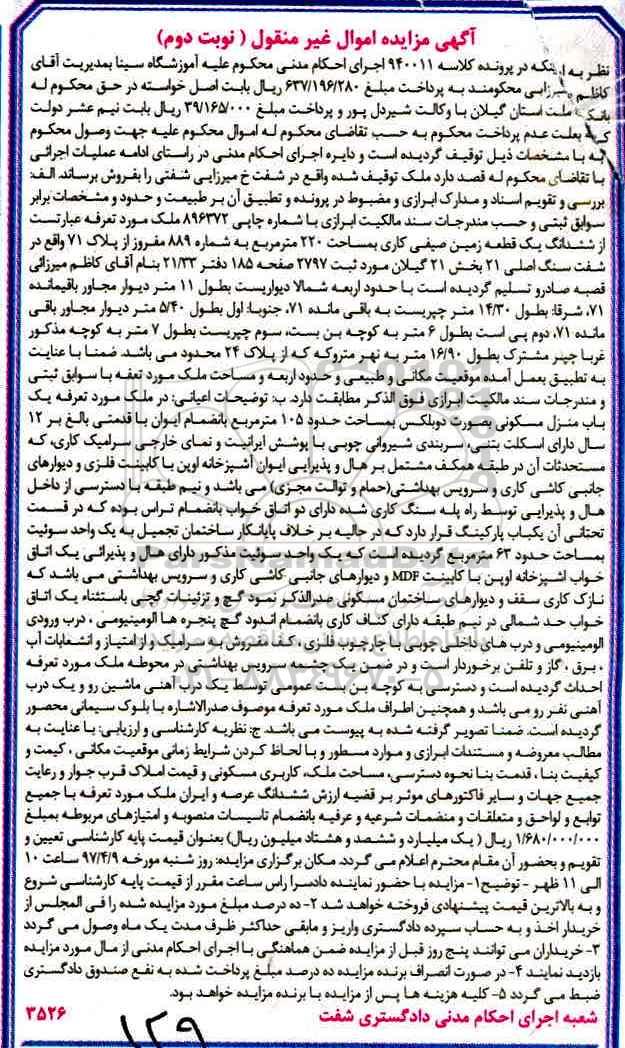 آگهی مزایده اموال غیر منقول ( نوبت دوم)
نظر به اینکه در پرونده کلاسه ۹۴۰۰۱۱ اجرای احکام مدنی محکوم علیه آموزشگاه سینا بمدیریت آقای
کاظم میرزایی محکومند به پرداخت مبلغ ۶۳۷/۱۹۶/۲۸۰ ریال بابت اصل خواسته در حق محکوم له
بانک ملت استان گیلان با وکالت شیردل پور و پرداخت مبلغ ۳۹/۱۶۵/۰۰۰ ریال بابت نیم عشر دولت
که بعلت عدم پرداخت محکوم به حسب تقاضای محکوم له اموال محکوم علیه جهت وصول محکوم
به با مشخصات ذیل توقیف گردیده است و دایره اجرای احکام مدنی در راستای ادامه عملیات اجرائی
با تقاضای محکوم له قصد دارد ملک توقیف شده واقع در شفت خ میرزایی شفتی را بفروش برساند. الف:
بررسی و تقویم اسناد و مدارک ابرازی و مضبوط در پرونده و تطبیق آن بر طبیعت و حدود و مشخصات برابر
سوابق ثبتی و حسب مندرجات سند مالکیت ابرازی با شماره چاپی ۸۹۶۳۷۲ ملک مورد تعرفه عبارتست
از ششدانگ یک قطعه زمین صیفی کاری بمساحت ۲۲۰ مترمربع به شماره ۸۸۹ مفروز از پلاک ۷۱ واقع در
شفت سنگ اصلی ۲۱ بخش ۲۱ گیلان مورد ثبت ۲۷۹۷ صفحه ۱۸۵ دفتر ۲۱/۳۳ بنام آقای کاظم میرزائی
قصبه صادرو تسلیم گردیده است با حدود اربعه شمالا دیواریست بطول ۱۱ متر دیوار مجاور باقیمانده
۷۱، شرقا: بطول ۱۴/۳۰ متر چپریست به باقی مانده ۷۱، جنوبا: اول بطول ۵/۴۰ متر دیوار مجاور باقی
مانده ۷۱، دوم پی است بطول ۶ متر به کوچه بن بست، سوم چپریست بطول ۷ متر به کوچه مذکور
غربا چپر مشترک بطول ۱۶/۹۰ متر به نهر متروکه که از پلاک ۲۴ محدود می باشد. ضمنا با عنایت
به تطبیق بعمل آمده موقعیت مکانی و طبیعی و حدود اربعه و مساحت ملک مورد تعفه با سوابق ثبتی
و مندرجات سند مالکیت ابرازی فوق الذکر مطابقت دارد. ب: توضیحات اعیانی: در ملک مورد تعرفه یک
باب منزل مسکونی بصورت دوبلکس بمساحت حدود ۱۰۵ مترمربع بانضمام ایوان با قدمتی بالغ بر ۱۲
سال دارای اسکلت بتنی، سربندی شیروانی چوبی با پوشش ایرانیت و نمای خارجی سرامیک کاری، که
مستحدثات آن در طبقه همکف مشتمل بر هال و پذیرایی ایوان آشپزخانه اوپن با کابینت فلزی و دیوارهای
جانبی کاشی کاری و سرویس بهداشتی(حمام و توالت مجزی) می باشد و نیم طبقه با دسترسی از داخل
هال و پذیرایی توسط راه پله سنگ کاری شده دارای دو اتاق خواب بانضمام تراس بوده که در قسمت
تحتانی آن یکباب پارکینگ قرار دارد که در حالیه بر خلاف پایانکار ساختمان تجمیل به یک واحد سوئیت
بمساحت حدود ۶۳ مترمربع گردیده است که یک واحد سوئیت مذکور دارای هال و پذیرائی یک اتاق
خواب اشپزخانه اوپن با کابینت MDF و دیوارهای جانبی کاشی کاری و سرویس بهداشتی می باشد که
نازک کاری سقف و دیوارهای ساختمان مسکونی صدرالذکر نمود گچ و تزئینات گچی باستثناء یک اتاق
خواب حد شمالی در نیم طبقه دارای کناف کاری بانضمام اندود گچ پنجره ها الومینیومی ، درب ورودی
الومینیومی و درب های داخلی چوبی با چارچوب فلزی ، کف مفروش به سرامیک و از امتیاز و انشعابات آب
، برق ، گاز و تلفن برخوردار است و در ضمن یک چشمه سرویس بهداشتی در محوطه ملک مورد تعرفه
احداث گردیده است و دسترسی به کوچه بن بست عمومی توسط یک درب آهنی ماشین رو و یک درب
آهنی نفر رو می باشد و همچنین اطراف ملک مورد تعرفه موصوف صدرالاشاره با بلوک سیمانی محصور
گردیده است. ضمنا تصویر گرفته شده به پیوست می باشد. ج: نظریه کارشناسی و ارزیابی: با عنایت به
مطالب معروضه و مستندات ابرازی و موارد مسطور و با لحاظ کردن شرایط زمانی موقعیت مکانی ، کیمت و
کیفیت بنا ، قدمت بنا نحوه دسترسی، مساحت ملک، کاربری مسکونی و قیمت املاک قرب جوار و رعایت
جمیع جهات و سایر فاکتورهای موثر بر قضیه ارزش ششدانگ عرصه و ایران ملک مورد تعرفه با جمیع
توابع و لواحق و متعلقات و منضمات شرعیه و عرفیه بانضمام تاسیسات منصوبه و امتیازهای مربوطه بمبلغ
۱/۶۸۰/۰۰۰/۰۰۰ ریال ( یک میلیارد و ششصد و هشتاد میلیون ریال) بعنوان قیمت پایه کارشناسی تعیین و
تقویم و بحضور آن مقام محترم اعلام می گردد. مکان برگزاری مزایده: روز شنبه مورخه ۹۷/۴/۹ ساعت ۱۰
الی ۱۱ ظهر - توضیح۱- مزایده با حضور نماینده دادسرا راس ساعت مقرر از قیمت پایه کارشناسی شروع
و به بالاترین قیمت پیشنهادی فروخته خواهد شد ۲- ده درصد مبلغ مورد مزایده شده را فی المجلس از
خریدار اخذ و به حساب سپرده دادگستری واریز و مابقی حداکثر ظرف مدت یک ماه وصول می گردد
۳- خریداران می توانند پنج روز قبل از مزایده ضمن هماهنگی با اجرای احکام مدنی از مال مورد مزایده
بازدید نمایند ۴- در صورت انصراف برنده مزایده ده درصد مبلغ پرداخت شده به نفع صندوق دادگستری
ضبط می گردد ۵- کلیه هزینه ها پس از مزایده با برنده مزایده خواهد بود.
شعبه اجرای احکام مدنی دادگستری شفت ۳۵۲۶
۱۲۹